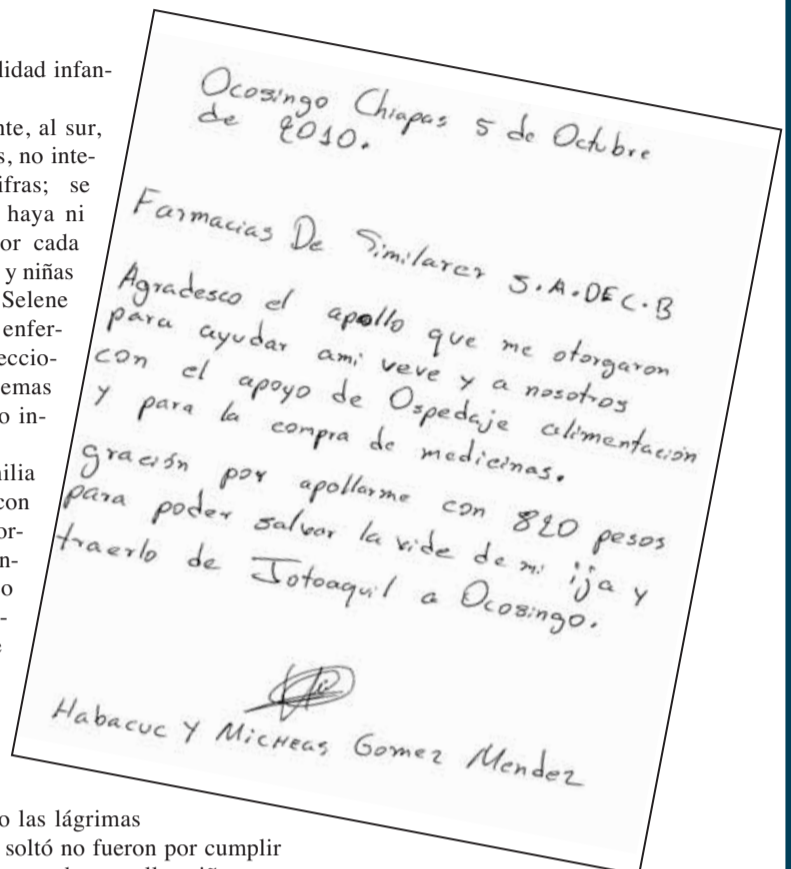 lidad infan-
nte, al sur,
s, no inte-
ifras; se
haya ni
or cada
y niñas
Selene
enfer-
eccio-
emas
o in-
ilia
con
or-
n-
o
-
o las lágrimas
soltó no fueron por cumplir
Ocosingo Chiapas 5 de Octubre
de 2010.
Farmacias De Similares S.A.DEC.B
Agradesco el apollo que me otorgaron
para ayudar ami veve y a nosotros
con el apoyo de Ospedaje alimentación
y para la compra de medicinas.
gración por apollarme con 820 pesos
para poder salvar la vide de mi ija y
traerlo de Jotoaquil a Ocosingo.
Habacuc Y Micheas Gomez Mendez